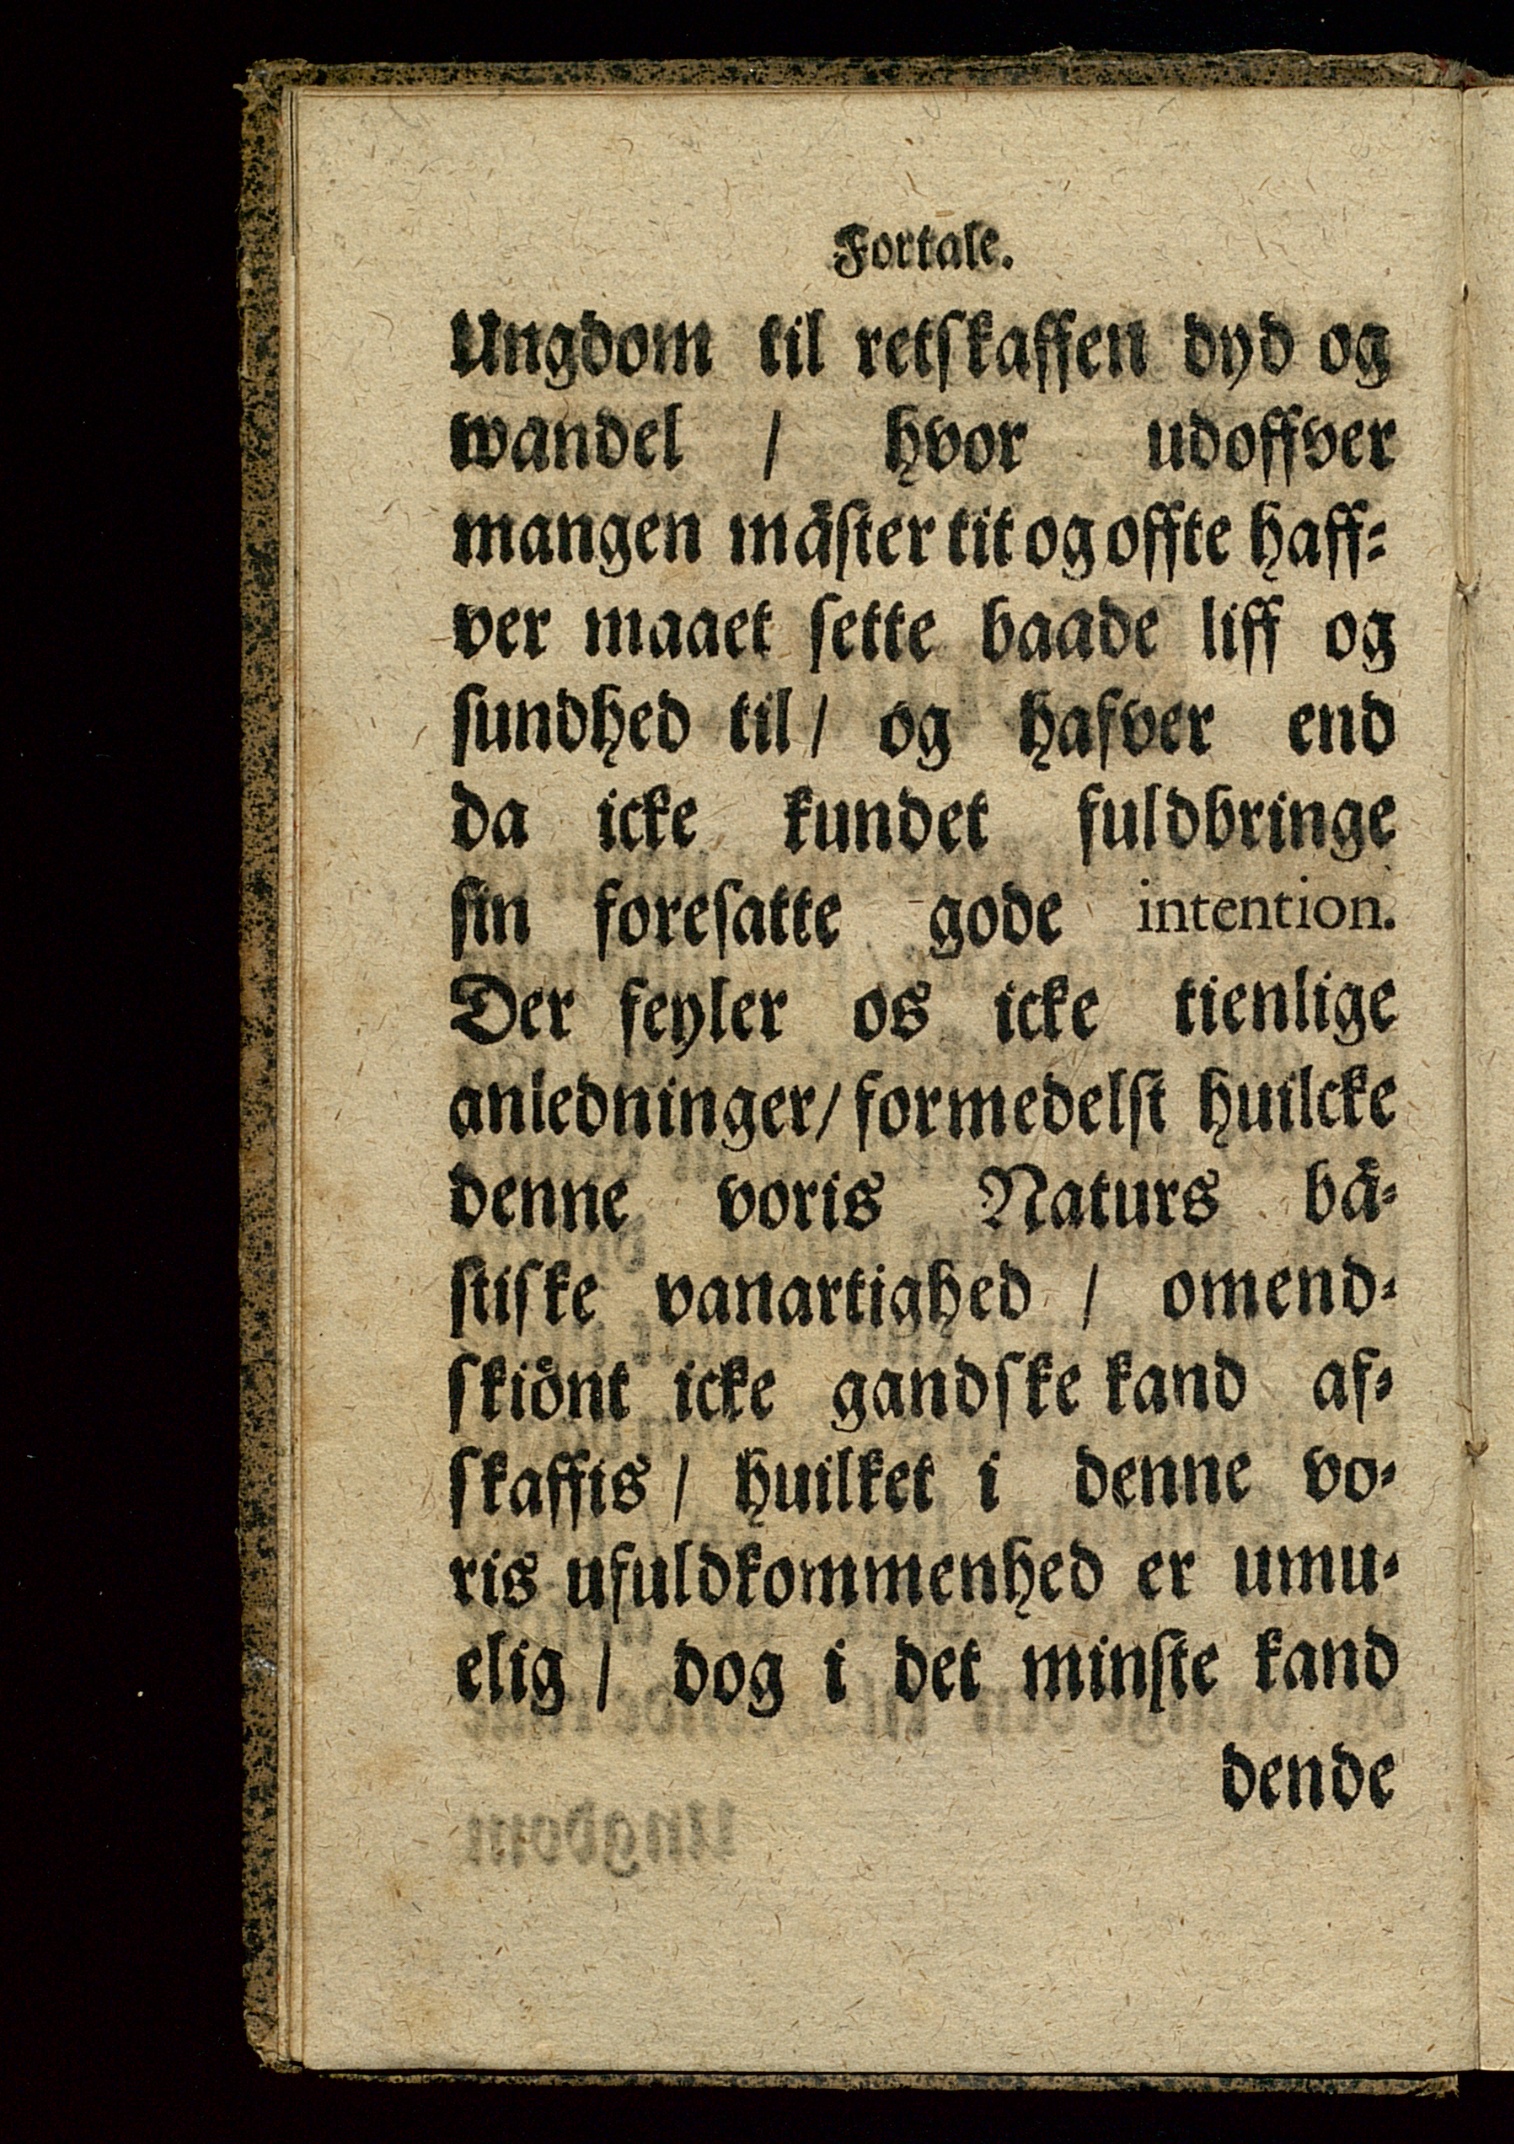 Fortale.
Ungdom til retſkaffen dyd og
wandel / hvor udoffver
mangen mäſter tit og offte haff⸗
ver maaet ſette baade liff og
ſundhed til / og hafver end
da icke kundet fuldbringe
ſin foreſatte gode intention.
Der feyler os icke tienlige
anledninger / formedelſt huilcke
denne voris Naturs bä⸗
ſtiſke vanartighed / omend⸗
ſkiönt icke gandſke kand af⸗
ſkaffis / huilket i denne vo⸗
ris ufuldkommenhed er umu⸗
elig / dog i det minſte kand
dende